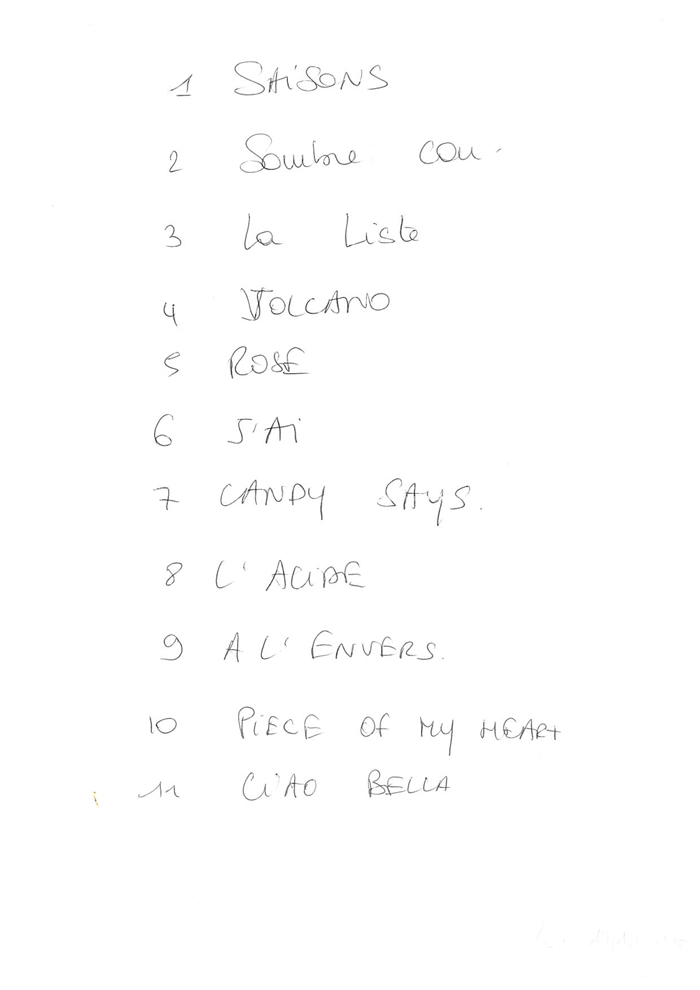 1 SAiSONS
2 Sombre con.
3 La Liste
4 VOLCANO
5 ROSE
6 J'Ai
7 CANDY SAYS.
8 L'ACiDE
9 A L'ENVERS.
10 PiECE OF MY HEART
11 CiAO BELLA